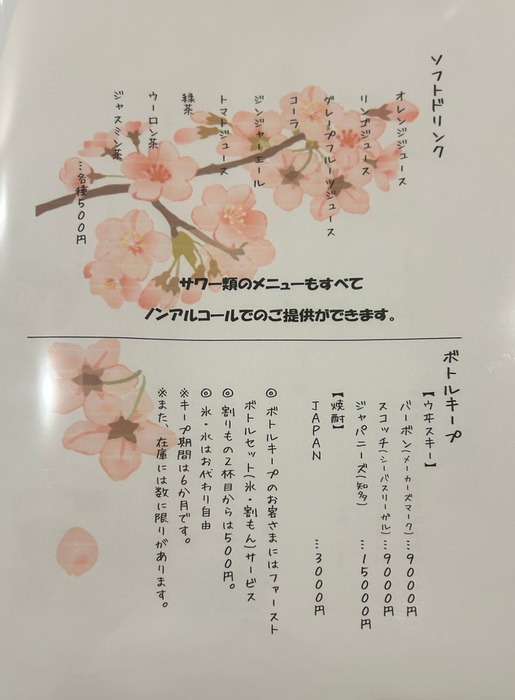 ソフトドリンク
オレンジジュース
リンゴジュース
グレープフルーツジュース
コーラ
ジンジャーエール
トマトジュース
緑茶
ウーロン茶
ジャスミン茶
…各種500円
サワー類のメニューもすべて
ノンアルコールでのご提供ができます。
ボトルキープ
【ウヰスキー】
バーボン(メーカーズマーク)…9000円
スコッチ(シーバスリーガル)…9000円
ジャパニーズ(知多)…15000円
【焼酎】
JAPAN…3000円
◎ボトルキープのお客さまにはファースト
ボトルセット(氷・割もん)サービス
◎割りもの2杯目からは500円。
◎氷・水はお代わり自由
※キープ期間は6か月です。
※また、在庫には数に限りがあります。